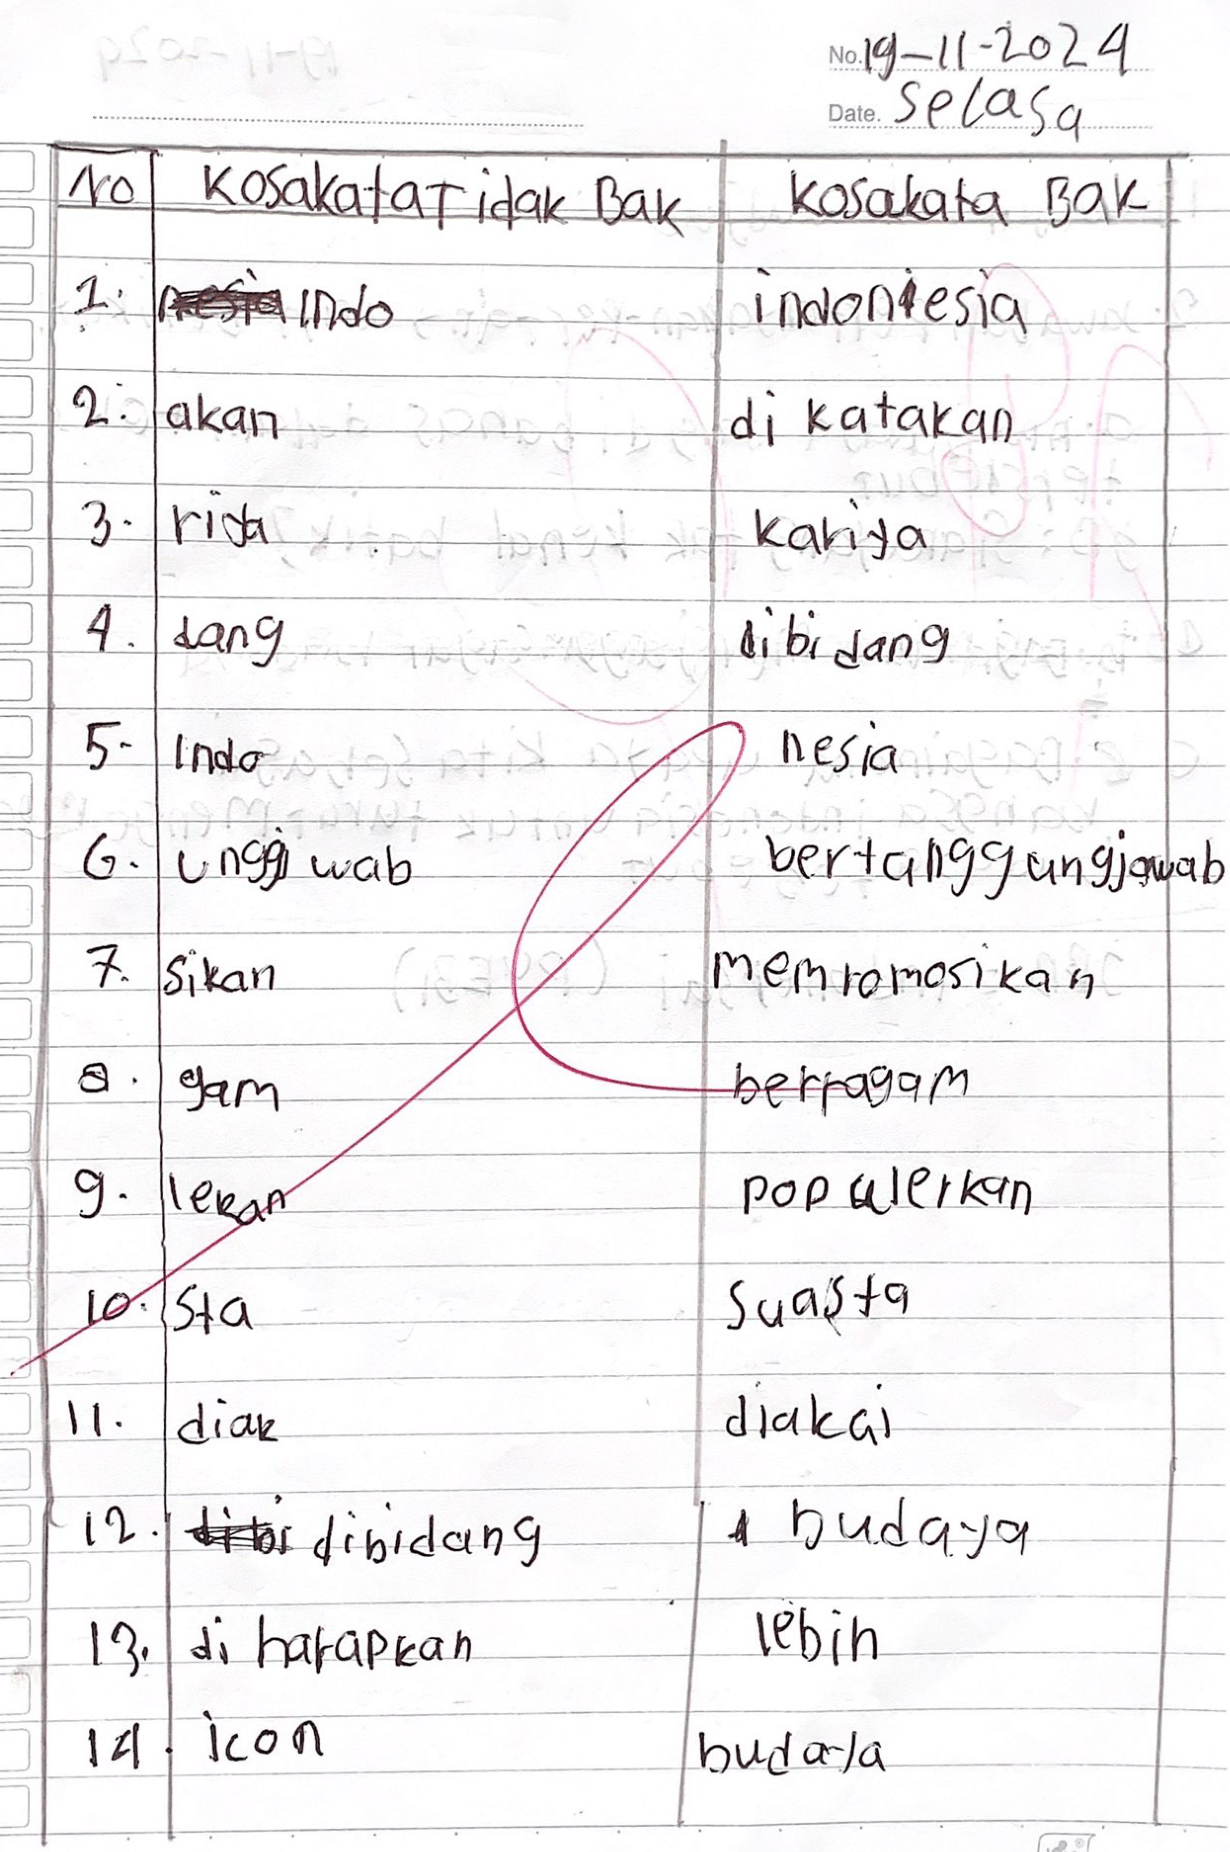 No. 19-11-2024
Date. Selasa
No Kosakata Tidak Bak Kosakata Bak
1. Indo indoniesia
2. akan di katakan
3. riya kariya
4. dang dibidang
5- Indo nesia
6. unggj wab bertanggungjawab
7. Sikan memromosikan
8. gam berragam
9. lekan pop ulerkan
10. Sta Suasta
11. diak diakai
12. dibidang budaya
13. di harapkan lebih
14. icon budaya